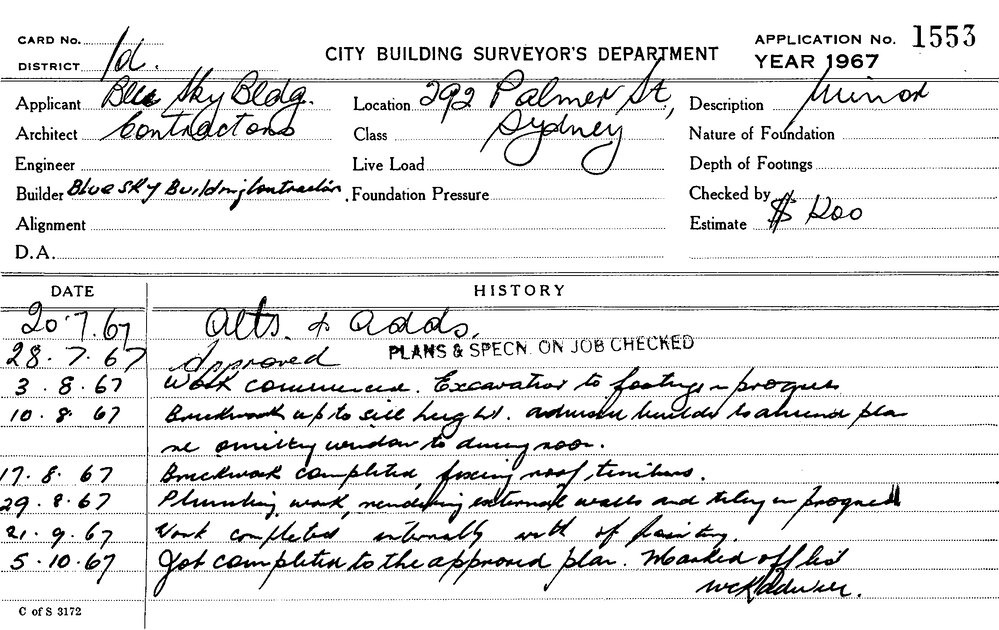 CARD No. 1d.
CITY BUILDING SURVEYOR'S DEPARTMENT
APPLICATION No. 1553
DISTRICT
YEAR 1967
Applicant Blue Sky Bldg. Location 292 Palmer St, Description Minor
Architect Contractors Class Sydney Nature of Foundation
Engineer Live Load Depth of Footings
Builder Blue Sky Building Contractors. Foundation Pressure Checked by
Alignment Estimate $
D.A.
DATE HISTORY
20.7.67 Alts. & Adds.
28.7.67 Approved PLANS & SPECN. ON JOB CHECKED
3.8.67 Work commenced. Excavation to footings in progress
10.8.67 Brickwork up to sill height. advised builder to amend plan
re omitting window to dining room.
17.8.67 Brickwork completed, fixing roof timbers.
29.8.67 Plumbing work, rendering external walls and tiling in progress
21.9.67 Work completed internally with of painting.
5.10.67 Job completed to the approved plan. Marked off list
C of S 3172